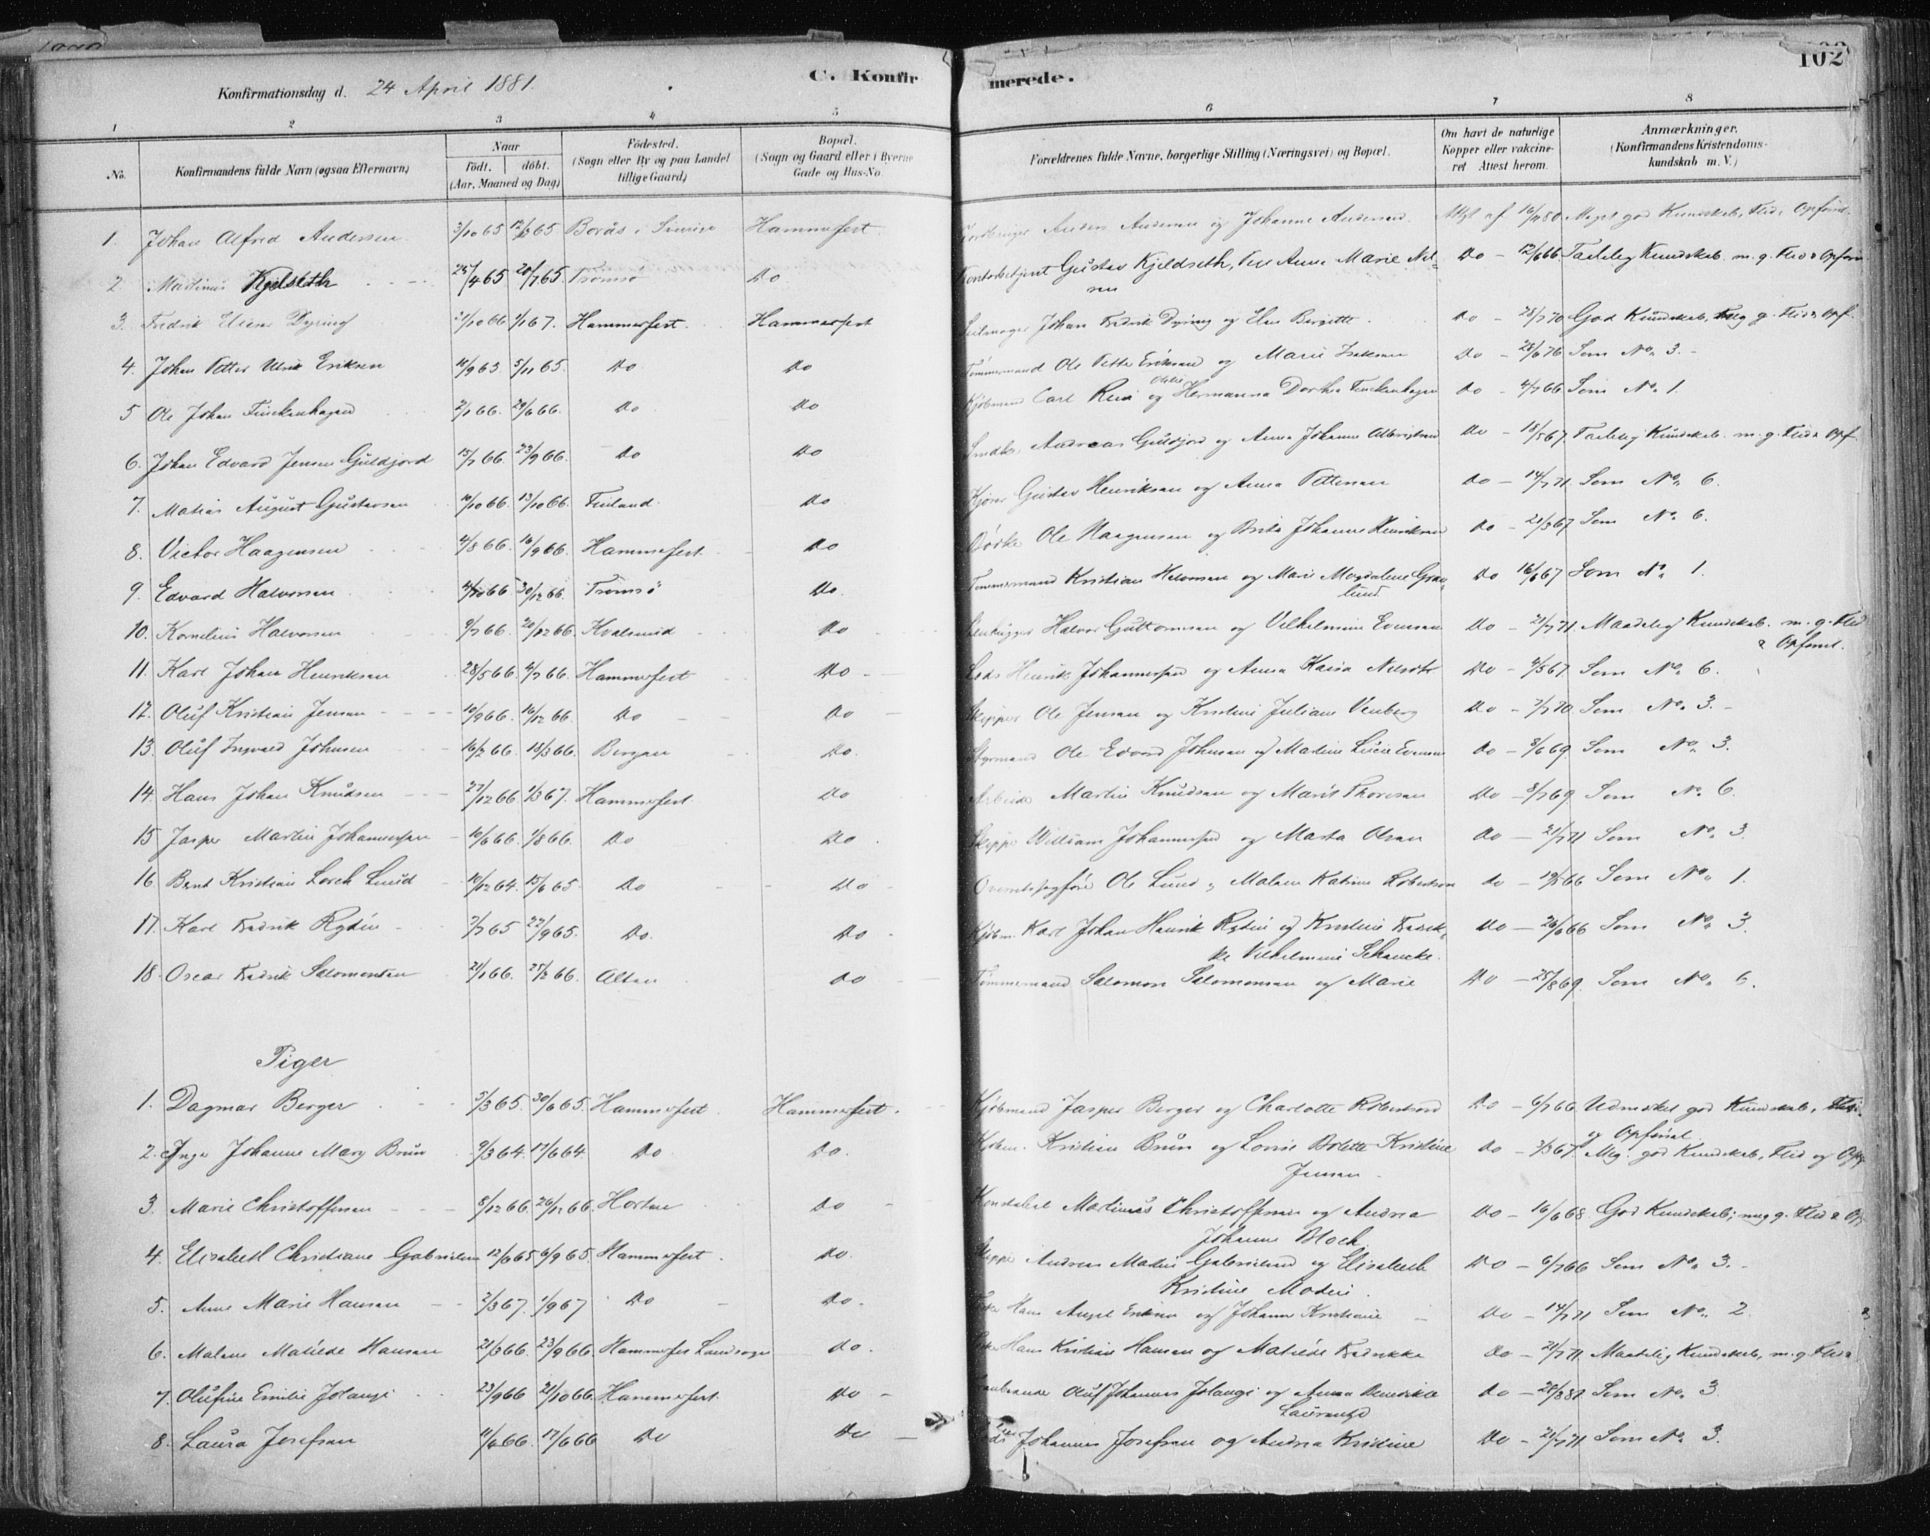 102
C. Konfirmerede.
Konfirmationsdag d. 24 April 1881.
1 2 3 4 5 6 7 8
No. Konfirmandens fulde Navn (ogsaa Efternavn) Naar Født. døbt. (Aar, Maaned og Dag) Fødested. (Sogn eller By og paa Landet tillige Gaard) Bopæl. (Sogn og Gaard eller i Byerne Gade og Hus-No. Forældrenes fulde Navne, borgerlige Stilling (Næringsvei) og Bopæl. Om havt de naturlige Kopper eller vakcineret Attest herom. Anmærkninger. (Konfirmandens Kristendomskundskab m. V.)
1. Johan Alfred Andersen 3/10 65 Hammerfest. Anders Andersen og Johanne Andersen Meget god Kundskab, Flid & Opførsel
2. Martinus Kjelseth 25/4 65 20/7 65 Tromsø Do. Gustav Kjeldseth, Anna Marie Nilsen Do Taalelig Kundskab. m. g. Flid & Opførs
3. Fredrik Dyring 1/1 67. Hammerfest. Hammerfest Johan Fredrik Dyring og Else Bergitte. Do God Kundskab, meg g. Flid & Opf.
4. Johan Petter Ulrik Eriksen 10/9 63 5/11 65. Do Do Tømmermand Ole Petter Eriksen og Marie Do Som No. 3.
5 Ole Johan Finckenhagen 2/1 66. 29/6 66. Do Do Kjøbmand Carl og Hermanna Dorthea Finckenhagen Do 4/7 66 Som No. 1.
6. Johan Edvard Jensen Guldjord 15/7 66. 23/9 66. Do Do Andreas Guldjord og Anna Johanne Do 18/5 67. Taalelig Kundskab. m. g. Flid & Opf
7. Matias August Gustavsen 10/10 66. 13/10 66. Finland. Do Gustav Henriksen og Anna Pettersen Do 14/7 71 Som No. 6.
8. Victor Haagensen 4/8 66. 16/9 66. Hammerfest. Do Ole Haagensen og Brita Johanne Henriksen Do Som No. 6.
9. Edvard Halvorsen 30/12 66. Tromsø Do. Tømmermand Kristian Halvorsen og Marie Magdalene Grønlund Do 16/6 67 Som No. 1.
10. Kornelius Halvorsen 9/7 66. 20/12 66. Kvalsund Do Halvor Guttormsen og Vilhelmine Evensen Do 21/7 71. Maadelig Kundskab. m. g. Flid & Opførsel.
11. Karl Johan Henriksen 28/5 66. 4/7 66. Hammerfest Do Henrik Johannessen og Anna Karia Nilsdtr Do 4/5 67 Som No. 6.
12. Oluf Kristian Jensen 10/9 66. 16/12 66. Do Do Skipper Ole Jensen og Kristine Juliane Venberg Do Som No. 3.
13. Oluf Ingvald Johnsen 16/2 66. 18/3 66. Bergen Do. Styrmand Ole Edvard Johnsen og Martine Lucie Evensen Do 8/6 69 Som No. 3.
14. Hans Johan Knudsen 27/12 66. 1/3 67. Hammerfest Do Martin Knudsen og Marit Thoresen Do 8/7 69 Som No. 6.
15 Jasper Martin Johannessen 10/6 66. 1/8 66. Do Do. William Johannessen og Marta Olsen Do 21/7 71 Som No. 3.
16. Bernt Kristian Lorch Lund 10/12 64. 15/6 65. Do Do Ole Lund og Malene Katrine Robertson Do Som No. 1.
17. Karl Fredrik Rydén 7/7 65 22/9 65. Do. Do Kjøbm. Karl Johan Henrik Rydén og Kristine Fredrikke Vilhelmine Schancke. Do 26/6 66 Som No. 3.
18. Oscar Fredrik Salomonsen 21/1 66. 25/2 66. Alten Do Tømmermand Salomon Salomonsen og Marie Do 25/8 69. Som No. 6.
Piger
1. Dagmar Berger 5/3 65. 30/6 65. Hammerfest. Hammerfest. Kjøbmand Jasper Berger og Charlotte Robertson Do 6/7 66 Udmærket god Kundskab, Flid og Opførsel
2. Inga Johanne Mary Brun 9/3 64. 17/6 64 Do Do. Kjøbm. Kristian Brun og Lovise Bolette Kristine Jensen Do 3/3 67 Meg. god Kundskab, Flid og Opf
3. Marie Christoffersen 8/12 66. 26/12 66. Horten Do Konstabel Martinus Christoffersen og Andrea Johanne Moch Do 16/6 68. God Kundskab; meg g. Flid & Opf
4. Elisabeth Christiane Gabrielsen 12/6 65. 6/9 65. Hammerfest. Do. Andreas Gabrielsen og Elisabeth Kristine Do 6/7 66 Som No. 3.
5. Anne Marie Hansen 2/3 67. 1/9 67 Do Do. Hans Angel og Johanne Kristiane Do 14/7 71 Som No. 2
6. Malene Matilde Hansen 21/3 66. 23/9 66. Hammerfest Landsogn Do. Hans Kristian Hansen og Matilde Fredrikke Do 21/7 71. Maadelig Kundskab, m. g Flid &
7. Olufine Emilie 23/9 66 21/10 66. Hammerfest. Do Oluf Johannes og Anna Benedikte Do Som No. 3.
8. Laura Josefsen 11/6 66. 17/6 66 Do Do Johannes Josefsen og Andrea Kristine Do 21/7 71 Som No. 3.